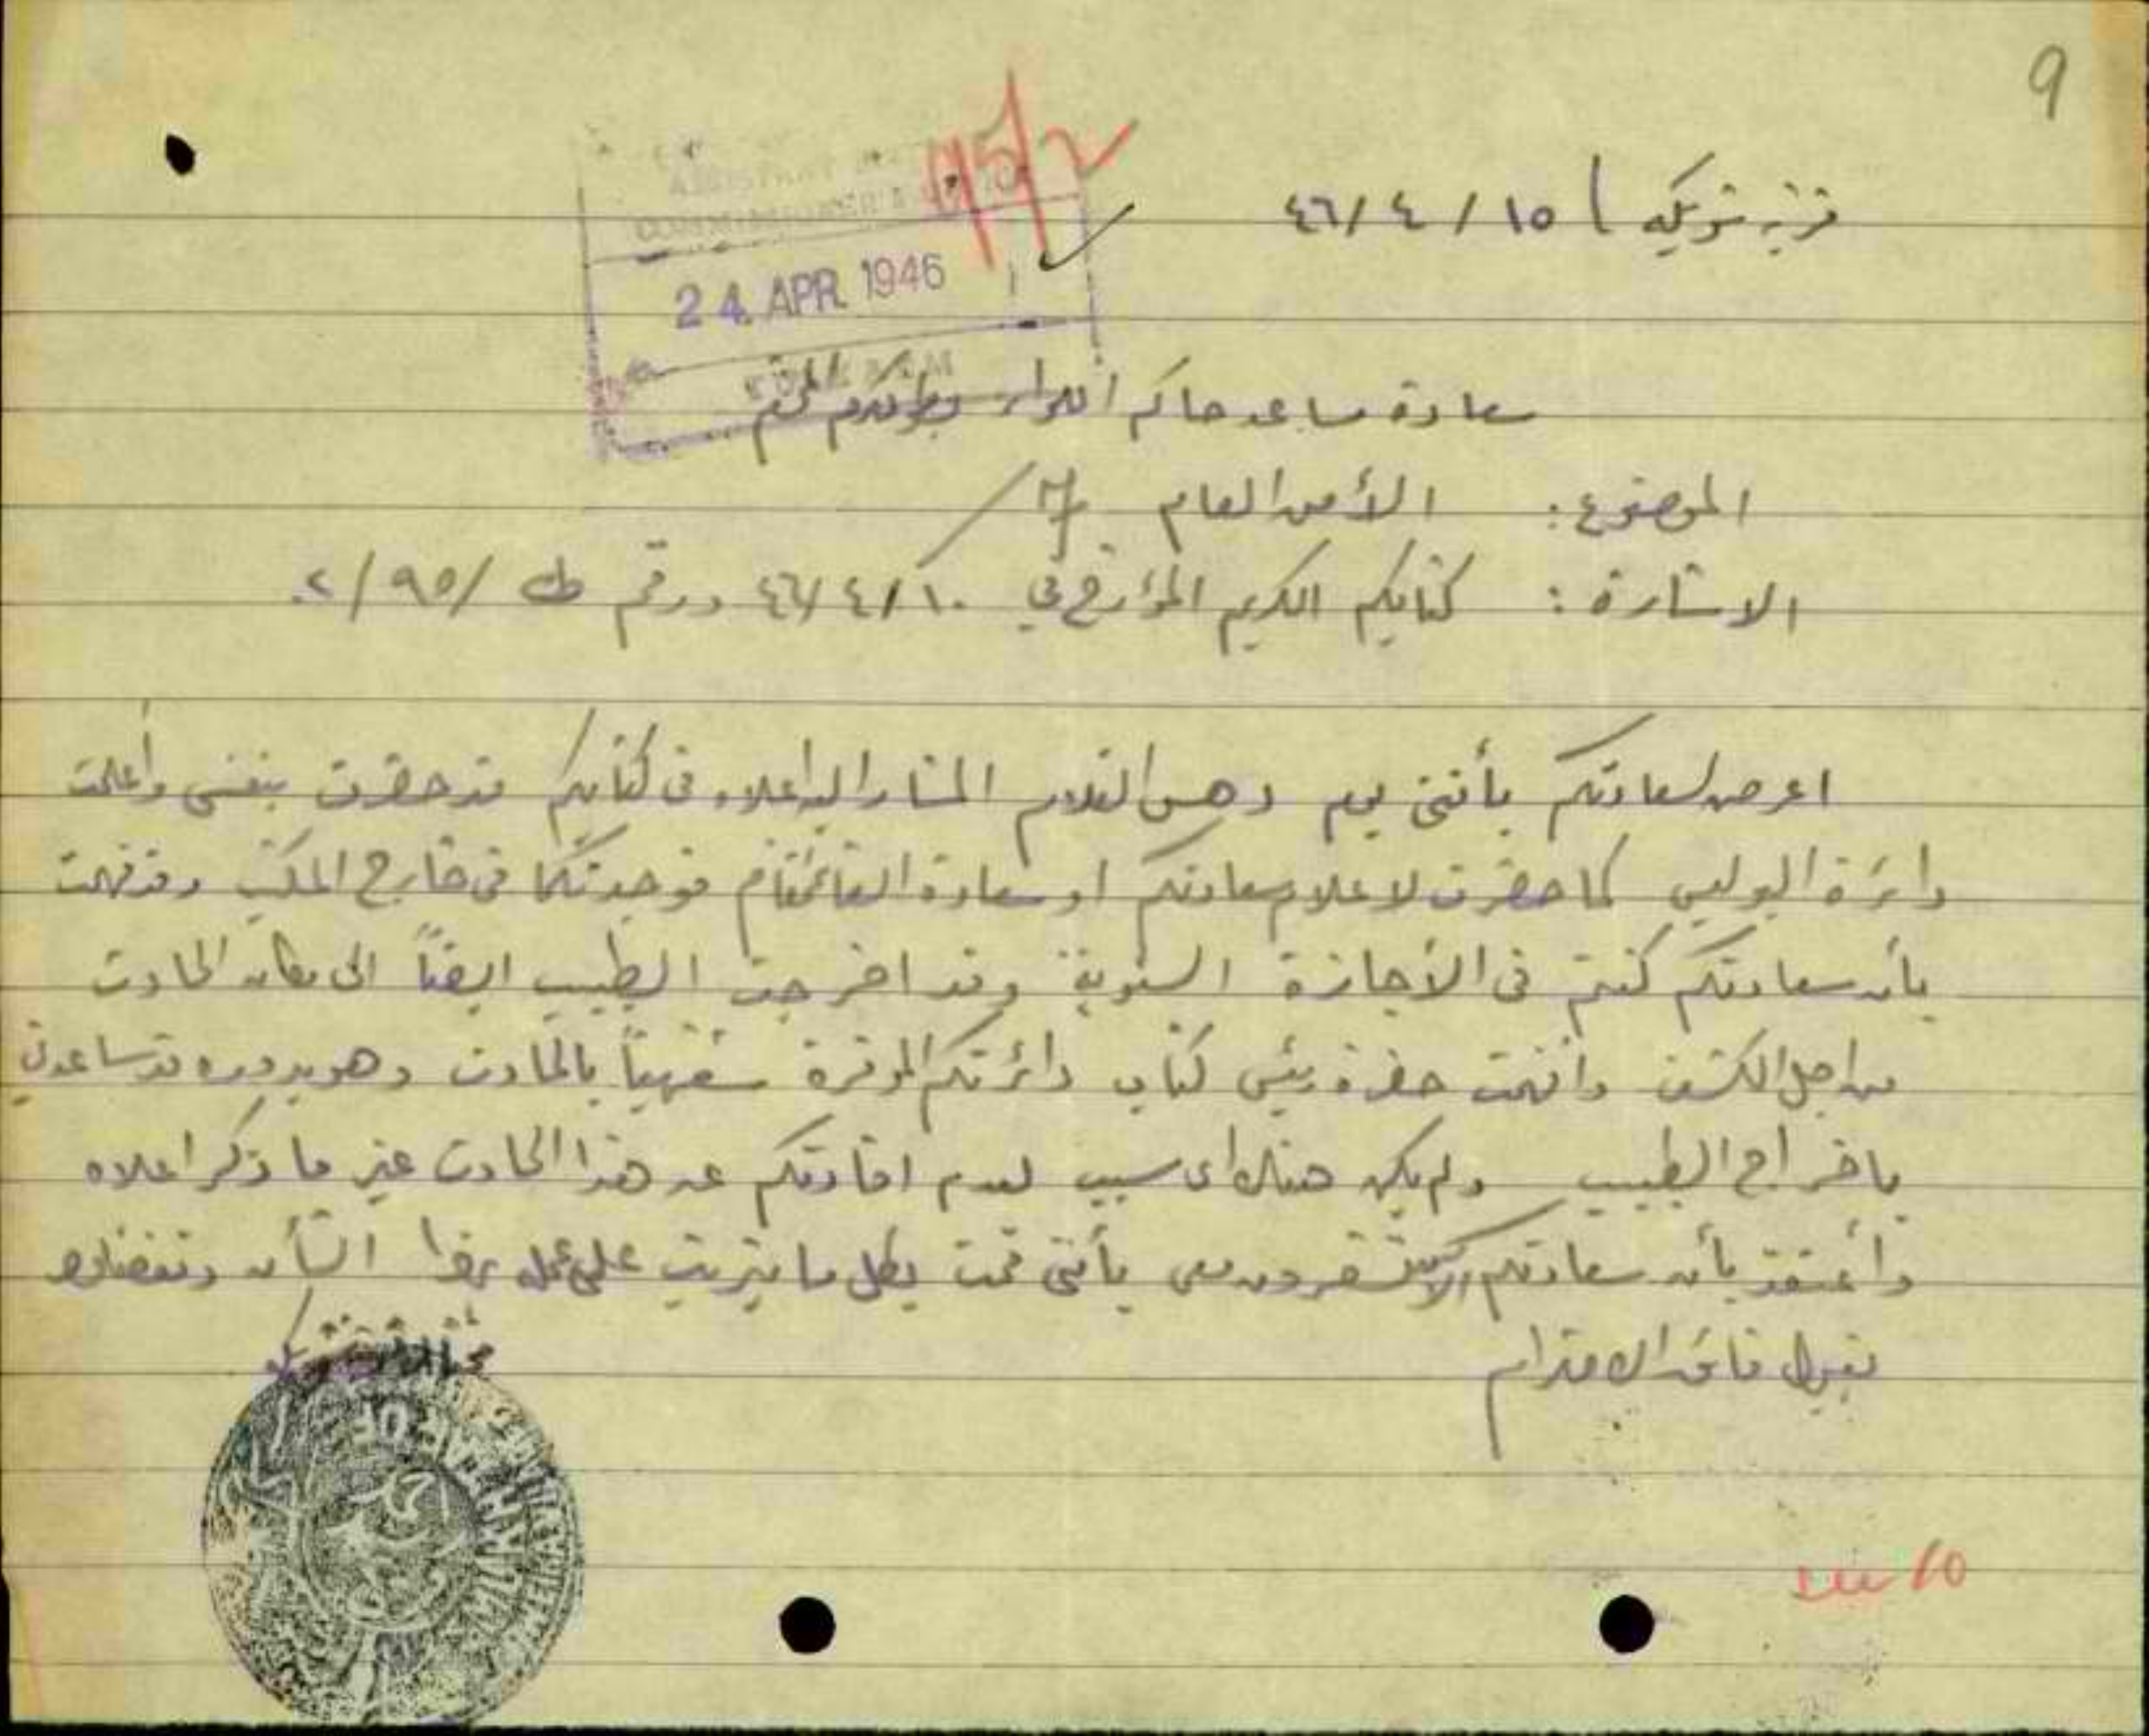 9
95/2
قرية شويكه ١٥ / ٤ / ٤٦
24 APR 1946
سعادة مساعد حاكم اللواء بطولكرم المحترم
الموضوع : الأمن العام
الاشارة : كتابكم الكريم المؤرخ في ١٠ / ٤ / ٤٦ ورقم ط / ٩٥ / ٢٠
اعرض لسعادتكم بأنني يوم دهس الغلام المشار اليه اعلاه في كتابكم قد حضرت بنفسي وأعلمت
دائرة البوليس كما حضرت لاعلام سعادتكم او سعادة القائمقام فوجدتكما في خارج المكتب وقد فهمت
بأن سعادتكم كنتم في الأجازة السنوية وقد اخرجت الطبيب ايضاً الى مكان الحادث
من اجل الكشف وافهمت حضرة رئيس كتاب دائرتكم الموقرة شفهياً بالحادث وهو بدوره قد ساعدني
باخراج الطبيب ولم يكن هناك اى سبب لعدم افادتكم عن هذا الحادث غير ما ذكر اعلاه
وأعتقد بأن سعادتكم معى بأننى قمت بكل ما يترتب علي عمله بهذا الشأن وتفضلوا
بقبول فائق الاحترام
MUKHTAR OF
10